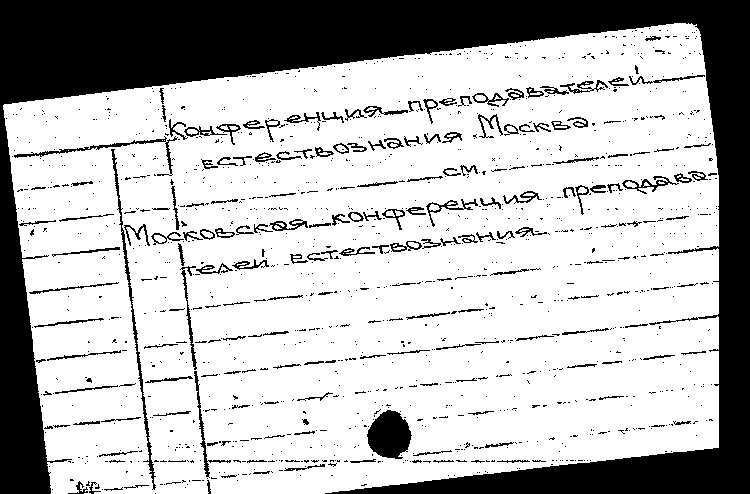 Конференция преподавателей
естествознания. Москва.
см.
Московская конференция преподава-
телей естествознания